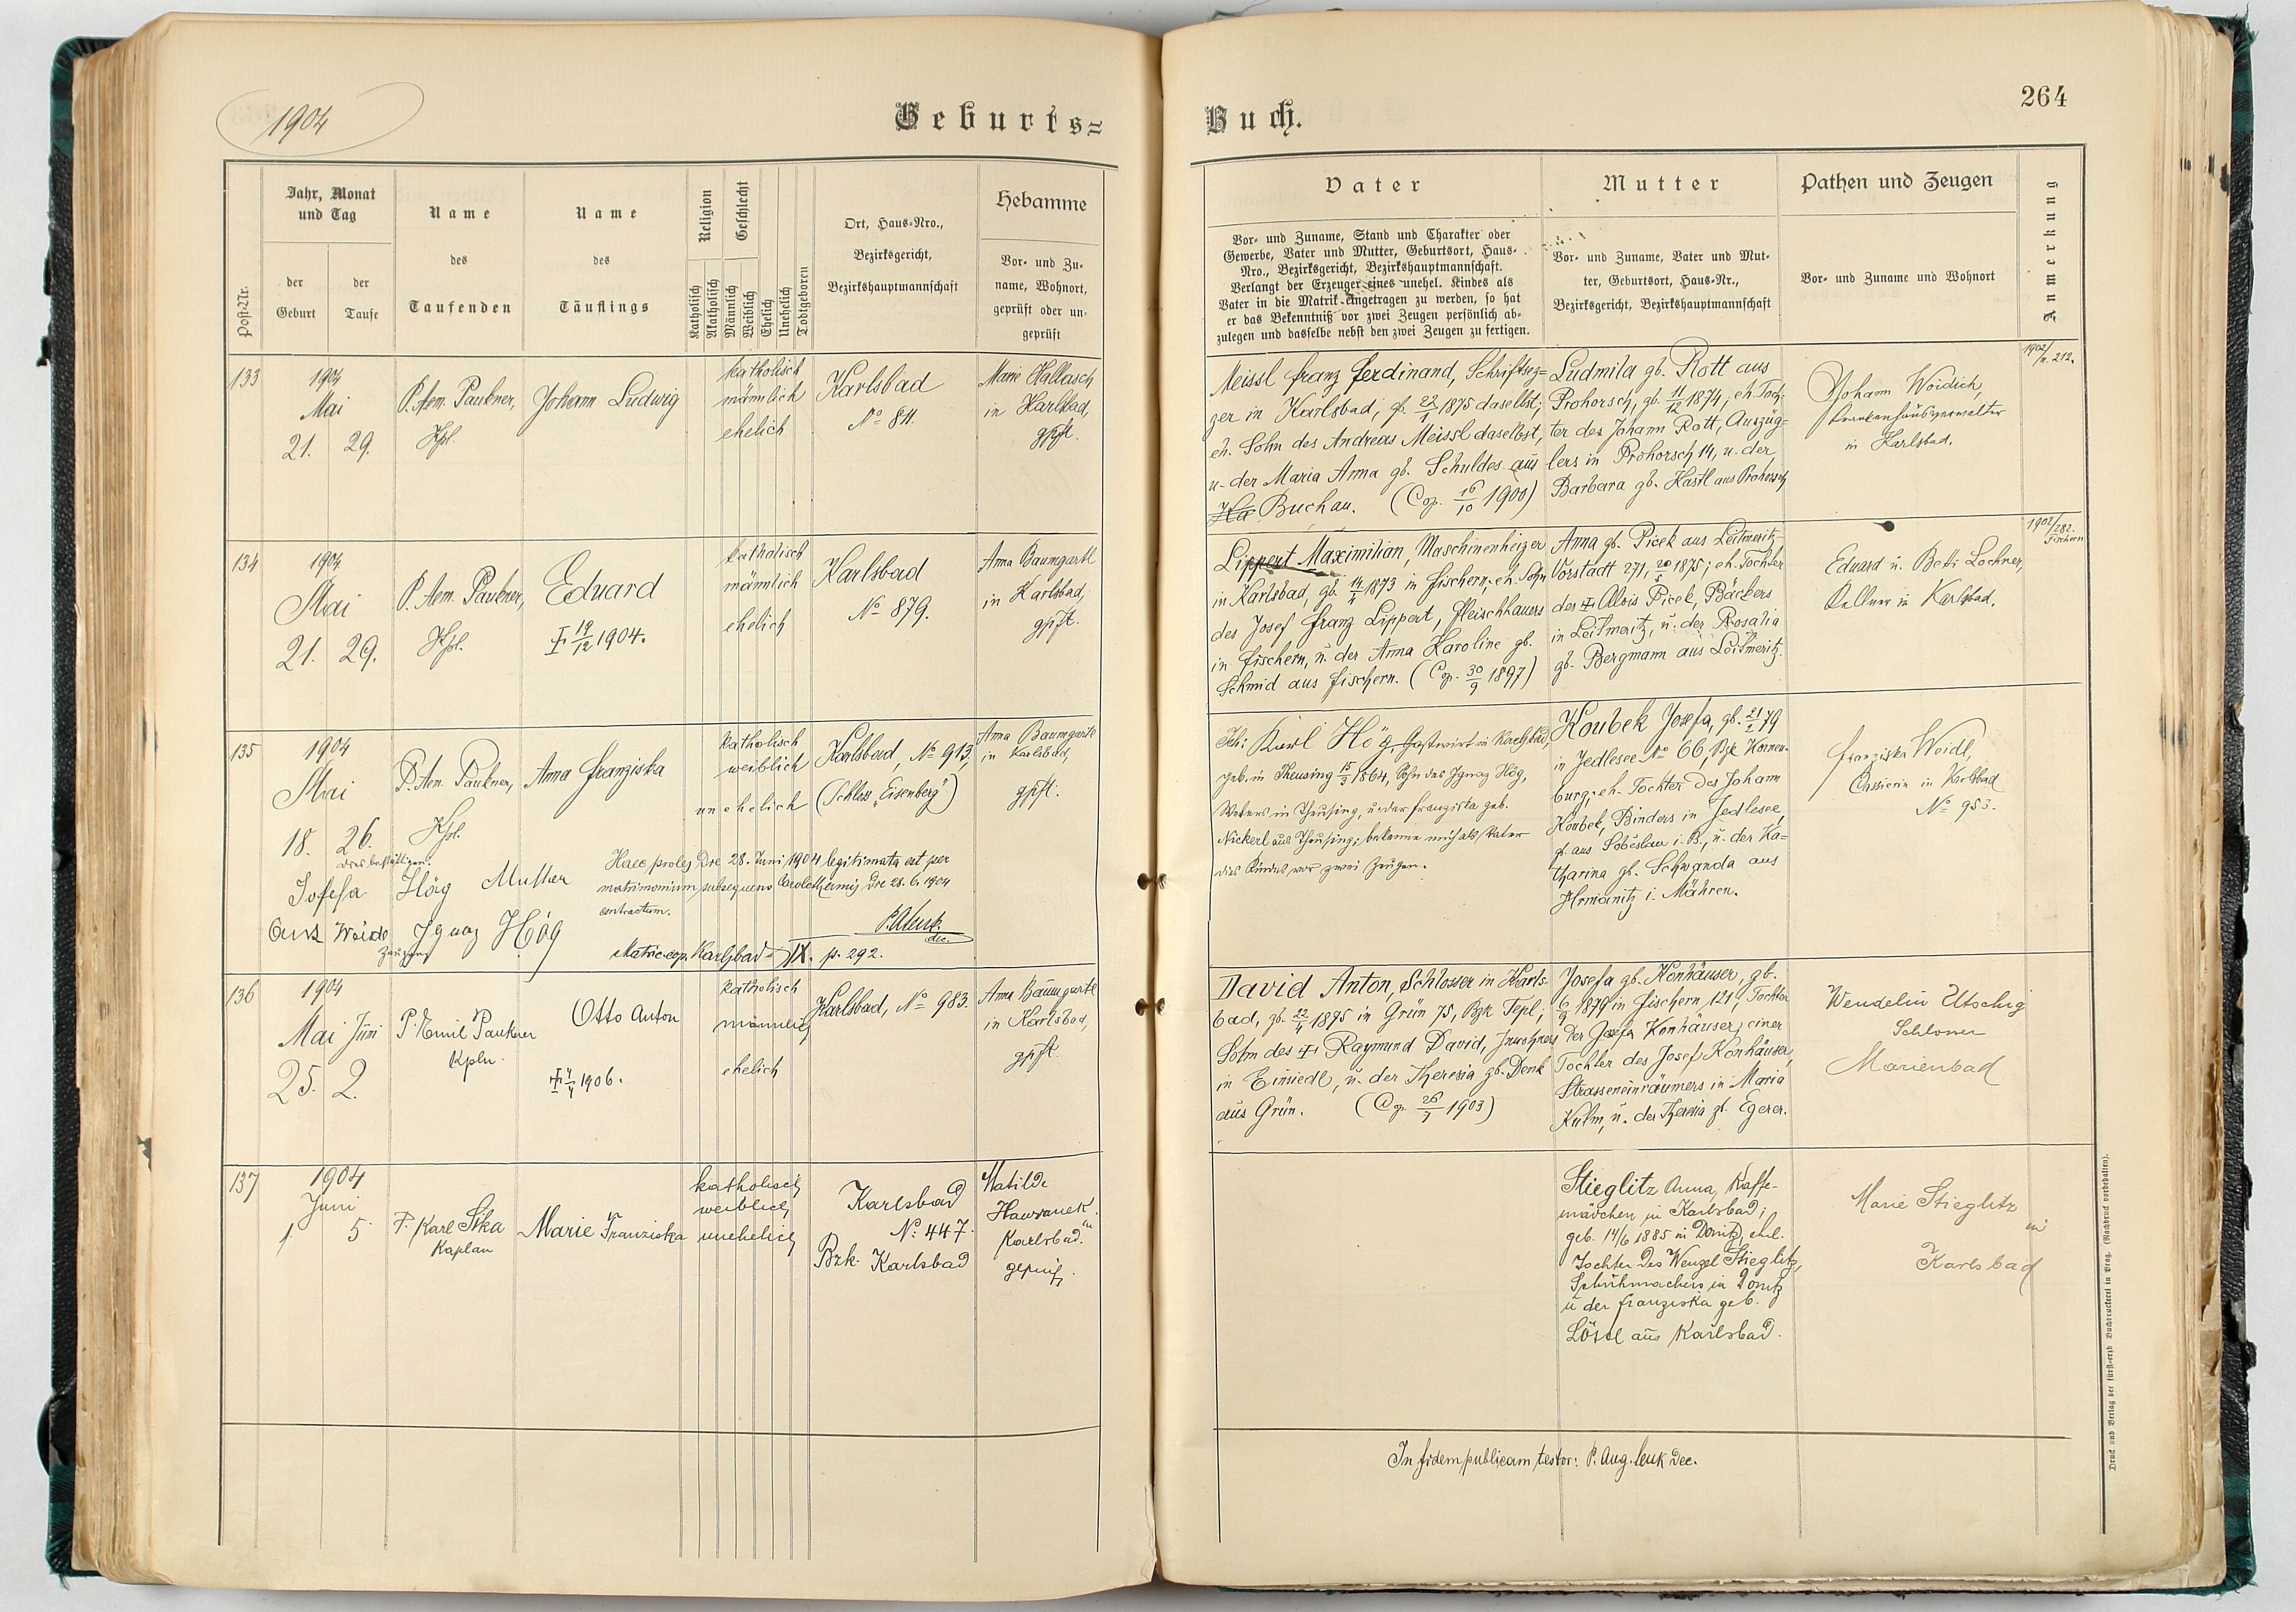 1904
Geburts=
Buch.
264
Post-Nr.
Jahr, Monat
und Tag
der
Geburt
der
Taufe
Name
des
Taufenden
Name
des
Täuflings
Religion
Geschlecht
Katholisch
Akatholisch
Männlich
Weiblich
Ehelich
Unehelich
Todtgeboren
Ort, Haus-Nro.,
Bezirksgericht,
Bezirkshauptmannschaft
Hebamme
Vor- und Zu-
name, Wohnort,
geprüft oder un-
geprüft
Vater
Vor- und Zuname, Stand und Charakter oder
Gewerbe, Vater und Mutter, Geburtsort, Haus-
Nro., Bezirksgericht, Bezirkshauptmannschaft.
Verlangt der Erzeuger eines unehel. Kindes als
Vater in die Matrik eingetragen zu werden, so hat
er das Bekenntniß vor zwei Zeugen persönlich ab-
zulegen und dasselbe nebst den zwei Zeugen zu fertigen.
Mutter
Vor- und Zuname, Vater und Mut-
ter, Geburtsort, Haus-Nr.,
Bezirksgericht, Bezirkshauptmannschaft
Pathen und Zeugen
Vor- und Zuname und Wohnort
Anmerkung
133
1904
Mai
21. 29.
P. Aem. Paukner,
Kpl.
Johann Ludwig
katholisch
männlich
ehelich
Karlsbad
No 811.
Marie Hallasch
in Karlsbad,
gpft.
Meissl Franz Ferdinand, Schriftsez=
zer in Karlsbad, gb. 23/1 1875 daselbst;
eh. Sohn des Andreas Meissl daselbst,
u. der Maria Anna gb. Schuldes aus
Buchau. (Cop. 16/10 1900)
Ludmila gb. Rott aus
Prohorsch, gb. 11/12 1874; eh. Toch-
ter des Johann Rott, Auszüg-
lers in Prohorsch 14, u. der
Barbara gb. Hastl aus Prohorsch
Johann Woidich,
Krankenhausverwalter
in Karlsbad.
1902/n. 212.
134
1904
Mai
21. 29.
P. Aem. Paukner,
Kpl.
Eduard
19/12 1904.
katholisch
männlich
ehelich
Karlsbad
No 879.
Anna Baumgartl
in Karlsbad,
gpft.
Lippert Maximilian, Maschinenheizer
in Karlsbad, gb. 14/4 1873 in Fischern; eh. Sohn
des Josef Franz Lippert, Fleischhauers
in Fischern, u. der Anna Karoline gb.
Schmid aus Fischern. (Cop. 30/9 1897)
Anna gb. Picek aus Leitmeritz-
Vorstadt 271, 20/5 1875; eh. Tochter
des Alois Picek, Bäckers
in Leitmeritz, u. der Rosalia
gb. Bergmann aus Leitmeritz.
Eduard u. Betti Lochner,
Kellner in Karlsbad.
1902/282.
Fischern
135
1904
Mai
18. 26.
P. Aem. Paukner,
Kpl.
Anna Franziska
katholisch
weiblich
unehelich
Karlsbad, No 913,
(Schloss „Eisenberg")
Anna Baumgartl
in Karlsbad,
gpft.
Josefa Hög Mutter
Ignaz Hög
Zeugen
Haec proles die 28. Juni 1904 legitimata est per
matrimonium subsequens Carolothermis die 28. 6. 1904
contractum.
P. A. Leuk
dec.
Matric. cop. Karlsbad IX. p. 292.
Ich: Karl Hög, Gastwirt in Karlsbad,
geb. in Theusing 15/3 1864, Sohn des Ignaz Hög,
Webers in Theusing, u. der Franziska geb.
Nickerl aus Theusing; bekenne mich als Vater
des Kindes vor zwei Zeugen.
Koubek Josefa, gb. 21/2 79
in Jedlesee No 66, Bzk Korneu-
burg; eh. Tochter des Johann
Koubek, Binders in Jedlesee,
gb. aus Sobeslau i. B., u. der Ka-
tharina gb. Schwanda aus
i. Mähren.
Franziska Woidl,
Cassierin in Karlsbad
No 953.
136
1904
Mai Juni
25. 2.
P. Emil Paukner
Kpln.
Otto Anton
4/4 1906.
katholisch
männlich
ehelich
Karlsbad, No 983.
Anna Baumgartl
in Karlsbad,
gpft.
David Anton, Schlosser in Karls-
bad, gb. 22/4 1875 in Grün 75, Bzk Tepl;
Sohn des Raymund David, Inwohners
in Einsiedl, u. der Theresia gb. Denk
aus Grün. (Cop. 26/7 1903)
Josefa gb. Konhäuser, gb.
6/9 1879 in Fischern 121, Tochter
der Josefa Konhäuser, einer
Tochter des Josef Konhäuser,
Strasseneinräumers in Maria
Kulm, u. der Theresia gb. Egerer.
Wendelin Utschig
Schlosser
Marienbad
137
1904
Juni
1. 5.
P. Karl Sika
Kaplan
Marie Franziska
katholisch
weiblich
unehelich
Karlsbad
No: 447.
Bzk. Karlsbad
Matilde
Hawranek
in Karlsbad.
geprüft.
Stieglitz Anna, Kaffe-
mädchen in Karlsbad;
geb. 14/6 1885 in Donitz, ehel.
Tochter des Wenzel Stieglitz,
Schuhmachers in Donitz
u der Franziska geb.
Lösel aus Karlsbad.
Marie Stieglitz
in
Karlsbad
In fidem publicam testor: P. Aug. Leuk Dec.
Druck und Verlag der fürst-erzb. Buchdruckerei in Prag. (Nachdruck vorbehalten).